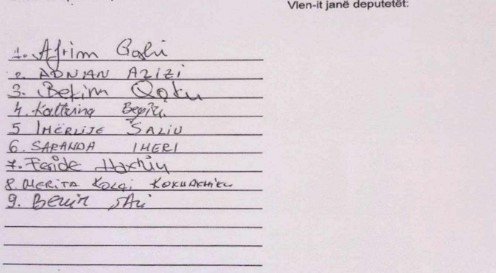 Vlen-it janë deputetët:
1. Afrim Gashi
2. ADNAN AZIZI
3. Bekim Qoku
4. Begiću
5 IMERLIJE SALIU
6. SARANDA IMERI
7. Feride Hoxhiu
8. MERITA KOLÇI KOXHAXHIKU
9. Bekir Ali